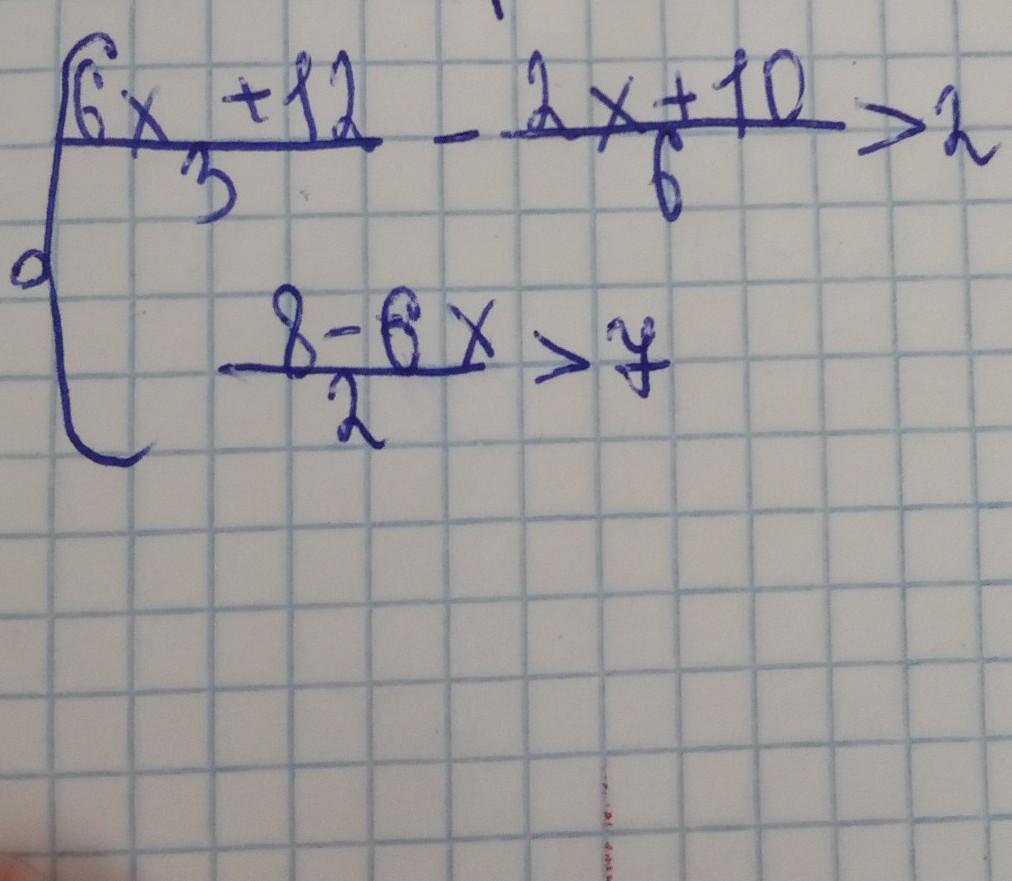 6x + 12 / 3 - 2x + 10 / 6 > 2
8 - 6x / 2 > 7